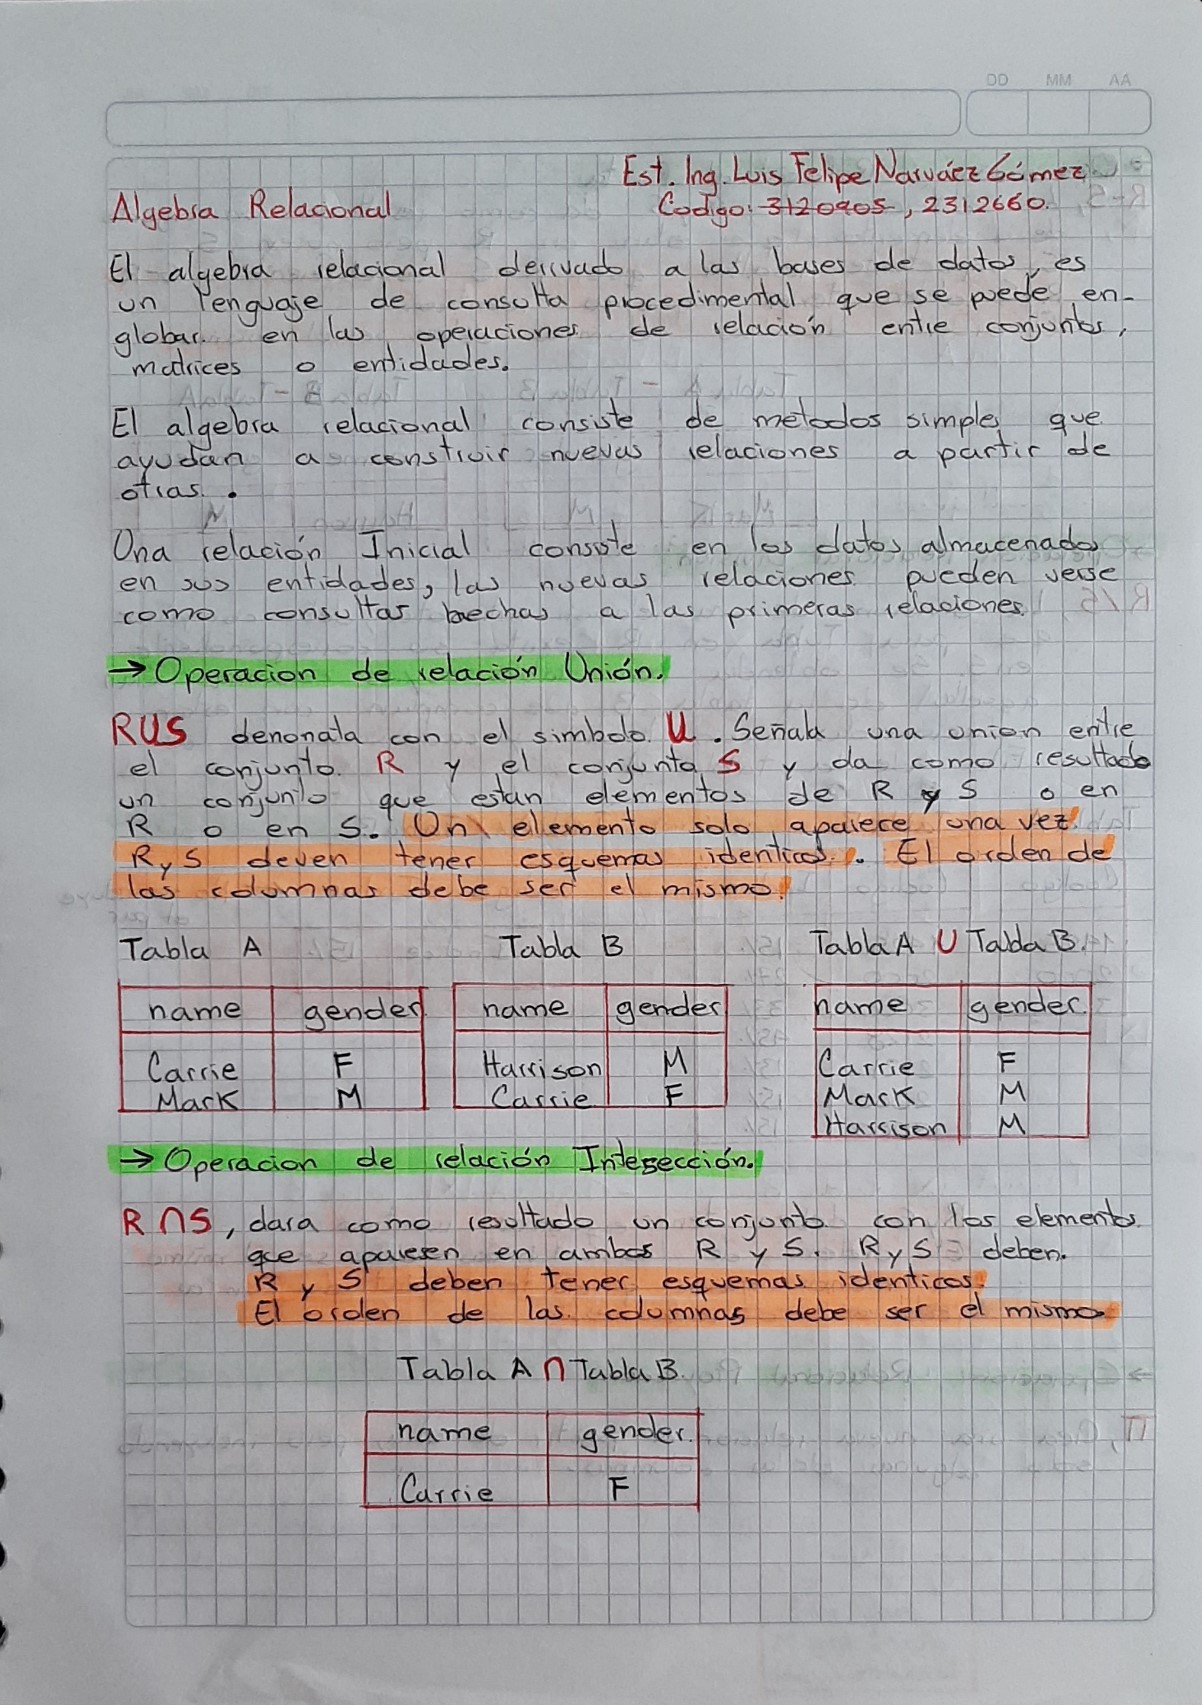 DD MM AA
Est. Ing. Luis Felipe Narváez Gómez
Algebra Relacional
Codigo: 3120905, 2312660.
El algebra relacional derivado a las bases de datos, es
un lenguaje de consulta procedimental que se puede en-
globar en las operaciones de relación entre conjuntos,
matrices o entidades.
El algebra relacional consiste de metodos simples que
ayudan a construir nuevas relaciones a partir de
otras.
Una relación Inicial consiste en los datos almacenados
en sus entidades, las nuevas relaciones pueden verse
como consultas hechas a las primeras relaciones.
→ Operacion de relación Unión.
RUS denonata con el simbolo U. Señala una union entre
el conjunto R y el conjunto S y da como resultado
un conjunto que estan elementos de R y S o en
R o en S. Un elemento solo aparece una vez.
R y S deven tener esquemas identicos. El orden de
las columnas debe ser el mismo!
Tabla A Tabla B Tabla A U Tabla B.
name gender name gender name gender
Carrie F Harrison M Carrie F
Mark M Carrie F Mark M
Harrison M
→ Operacion de relación Intesección.
R ∩ S, dara como resultado un conjunto con los elementos
que aparesen en ambos R y S. R y S deben.
R y S deben tener esquemas identicos.
El orden de las columnas debe ser el mismo
Tabla A ∩ Tabla B.
name gender.
Carrie F